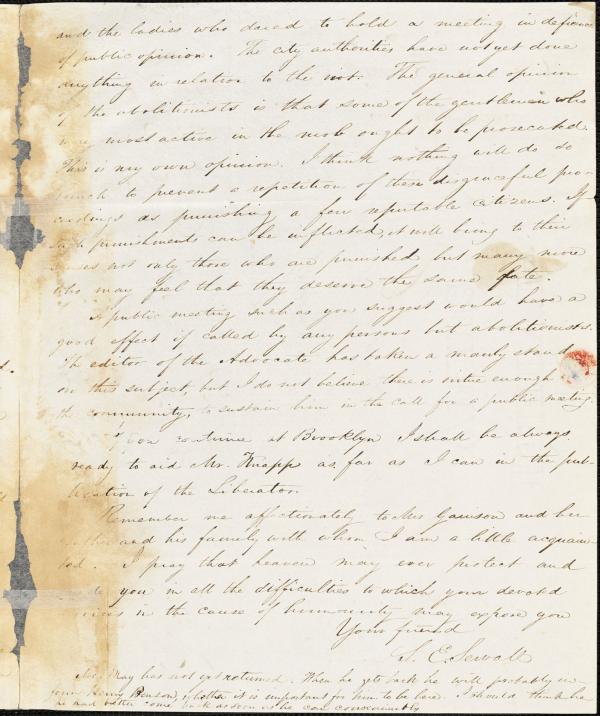 and the ladies who dared to hold a meeting in defiance
of public opinion. The city authorities have not yet done
anything in relation to the riot. The general opinion
of the abolitionists is that some of the gentlemen who
were most active in the mob ought to be prosecuted.
This is my own opinion. I think nothing will do so
much to prevent a repetition of these disgraceful pro-
ceedings as punishing a few reputable citizens. If
such punishments can be inflicted, it will bring to their
senses not only those who are punished but many more
who may feel that they deserve the same fate.
A public meeting such as you suggest would have a
good effect if called by any persons but abolitionists.
The editor of the Advocate has taken a manly stand
on this subject, but I do not believe there is virtue enough
the community, to sustain him in the call for a public meeting.
If you continue at Brooklyn I shall be always
ready to aid Mr. Knapp as far as I can in the pub-
lication of the Liberator.
Remember me affectionately to Mrs Garrison and her
father and his family with whom I am a little acquain-
ted. I pray that heaven may ever protect and
you in all the difficulties to which your devoted
services in the cause of humanity may expose you
Your friend
S. E. Sewall
Mr. May has not yet returned. When he gets back he will probably in-
form Henry Benson, whether it is important for him to be here. I should think he
he had better come back as soon as he can conveniently